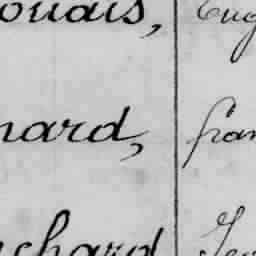 ouais, Eug
nard, fran
chard Jea